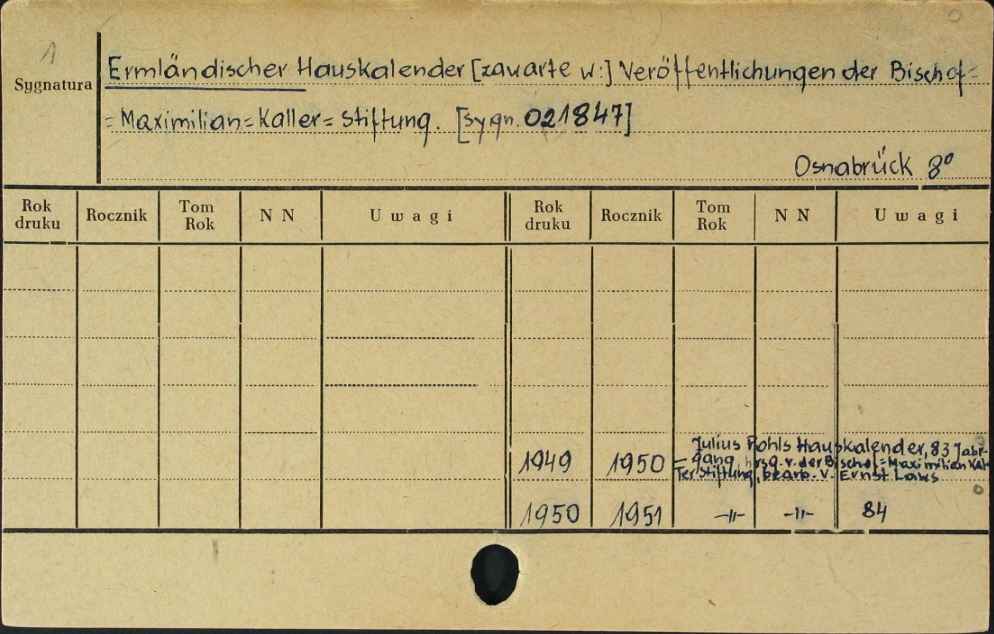 1
Sygnatura
Ermländischer Hauskalender [zawarte w:] Veröffentlichungen der Bischof=
=Maximilian=Kaller=Stiftung. [sygn. 021847]
Osnabrück 8°
Rok druku Rocznik Tom Rok N N Uwagi Rok druku Rocznik Tom Rok N N Uwagi
Julius Pohls Hauskalender, 83 Jahr-
1949 1950 – gang hrsg. v. der Bischof=Maximilian Kal-
lerstiftung, bearb. v. Ernst Laws
1950 1951 –"– –"– 84